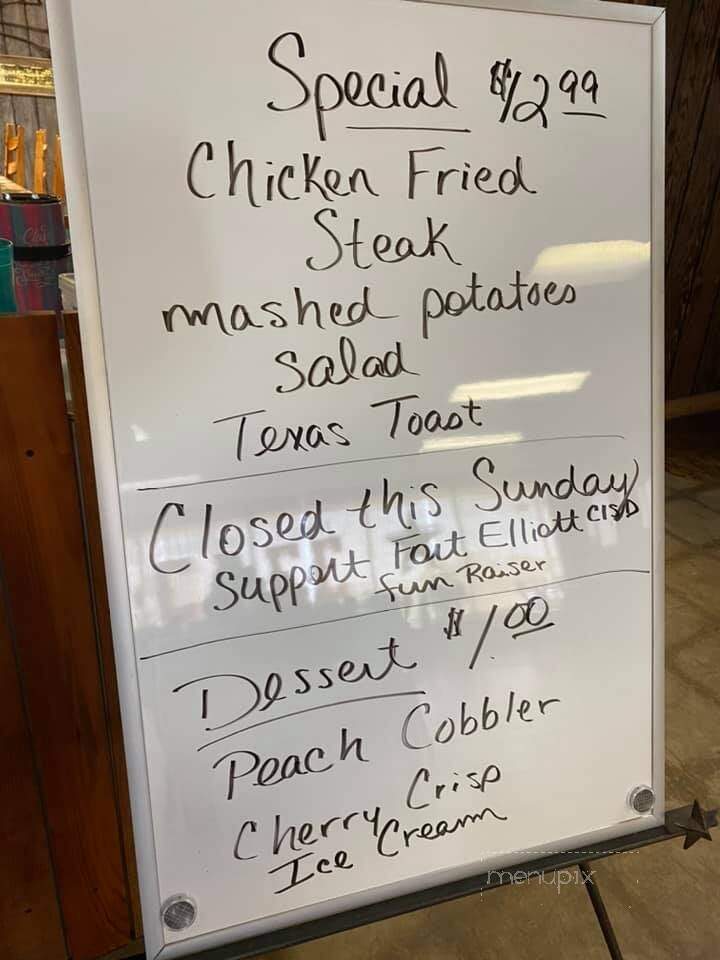 Special $12.99
Chicken Fried
Steak
mashed potatoes
salad
Texas Toast
Closed this Sunday
support Fort Elliott CISD
fun Raiser
Dessert $1.00
Peach Cobbler
Cherry Crisp
Ice Cream
menupix